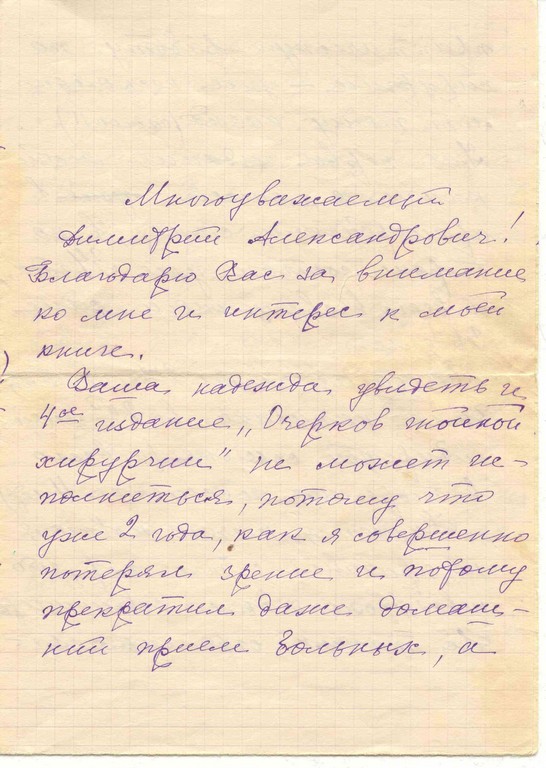 Многоуважаемый
Димитрий Александрович!
Благодарю Вас за внимание
ко мне и интерес к моей
книге.
Ваша надежда увидеть и
4ое издание „Очерков гнойной
хирургии" не может ис-
полниться, потому что
уже 2 года, как я совершенно
потерял зрение и потому
прекратил даже домаш-
ний прием больных, а